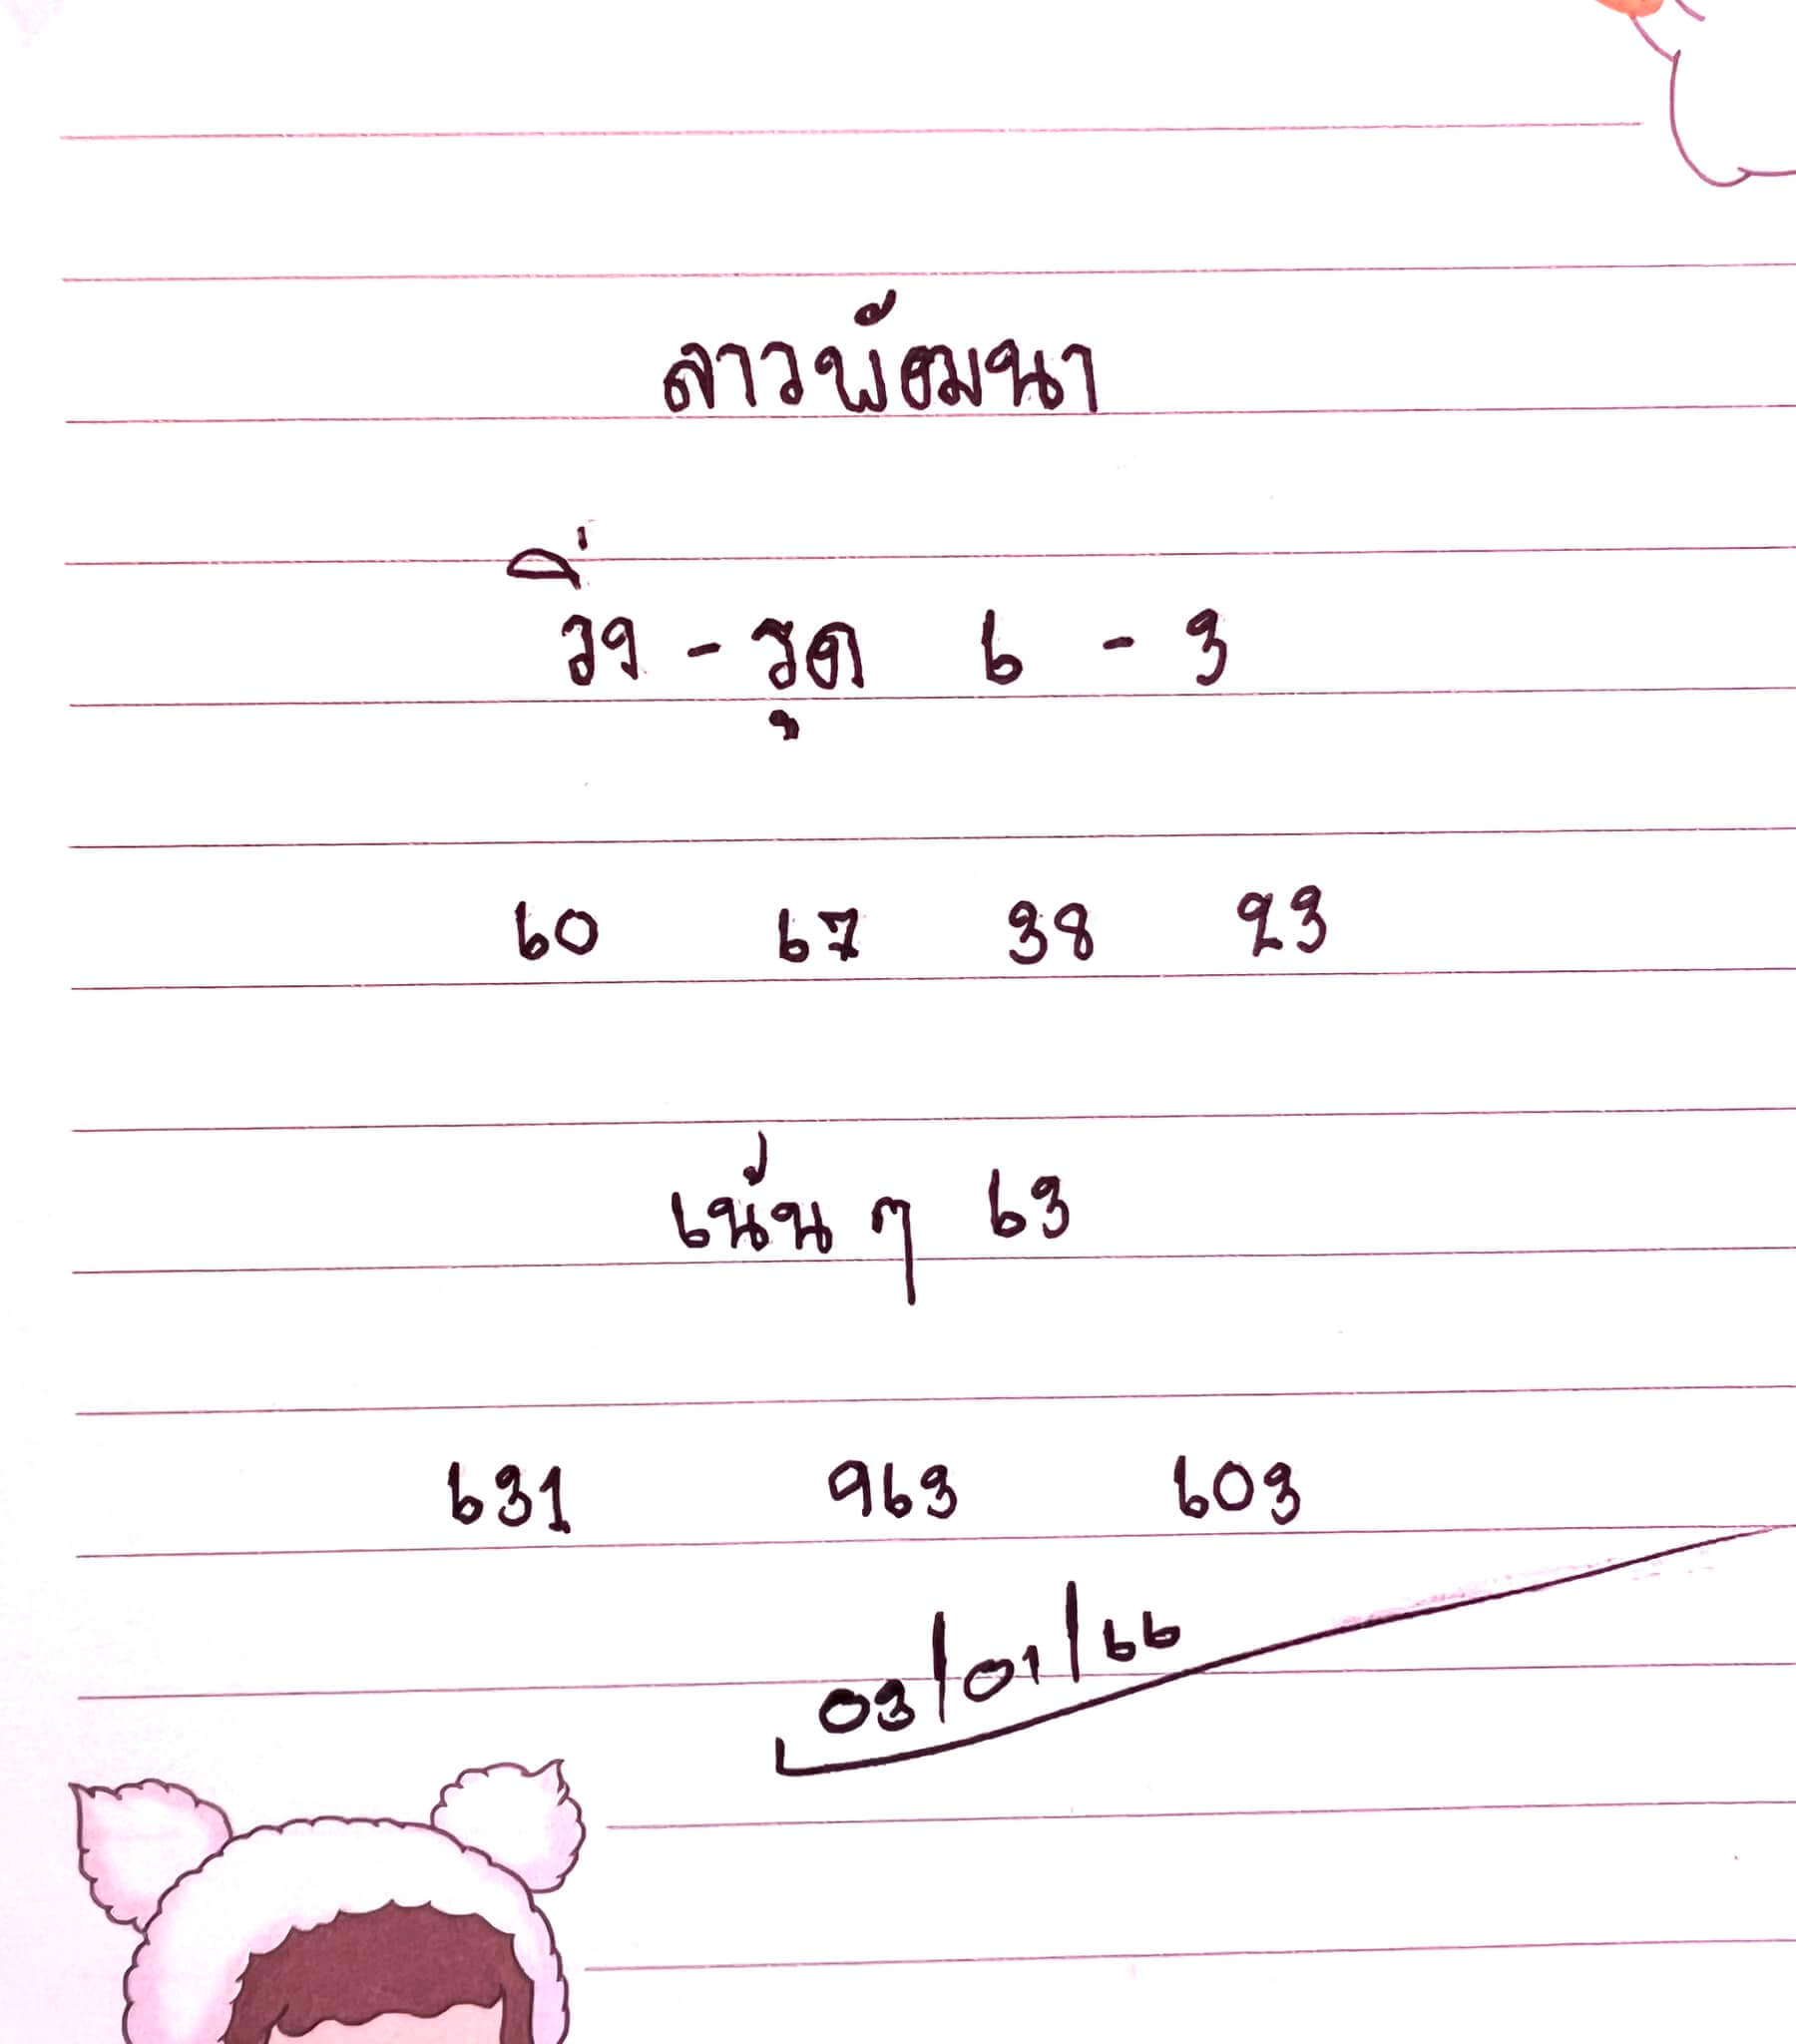 ลาวพัฒนา
วิ่ง - รูด 6 - 3
60 67 38 23
เน้นๆ 63
631 963 603
03/01/66